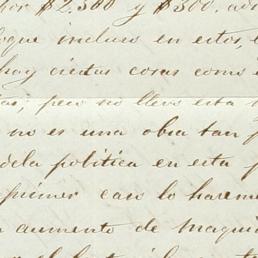 por $2,500 y $300, ad
que incluso en estos, e
hay ciertas cosas como
pero no lleve esta
no es una obra tan
de la politica en esta p
primer caso lo hareme
aumento de maqui